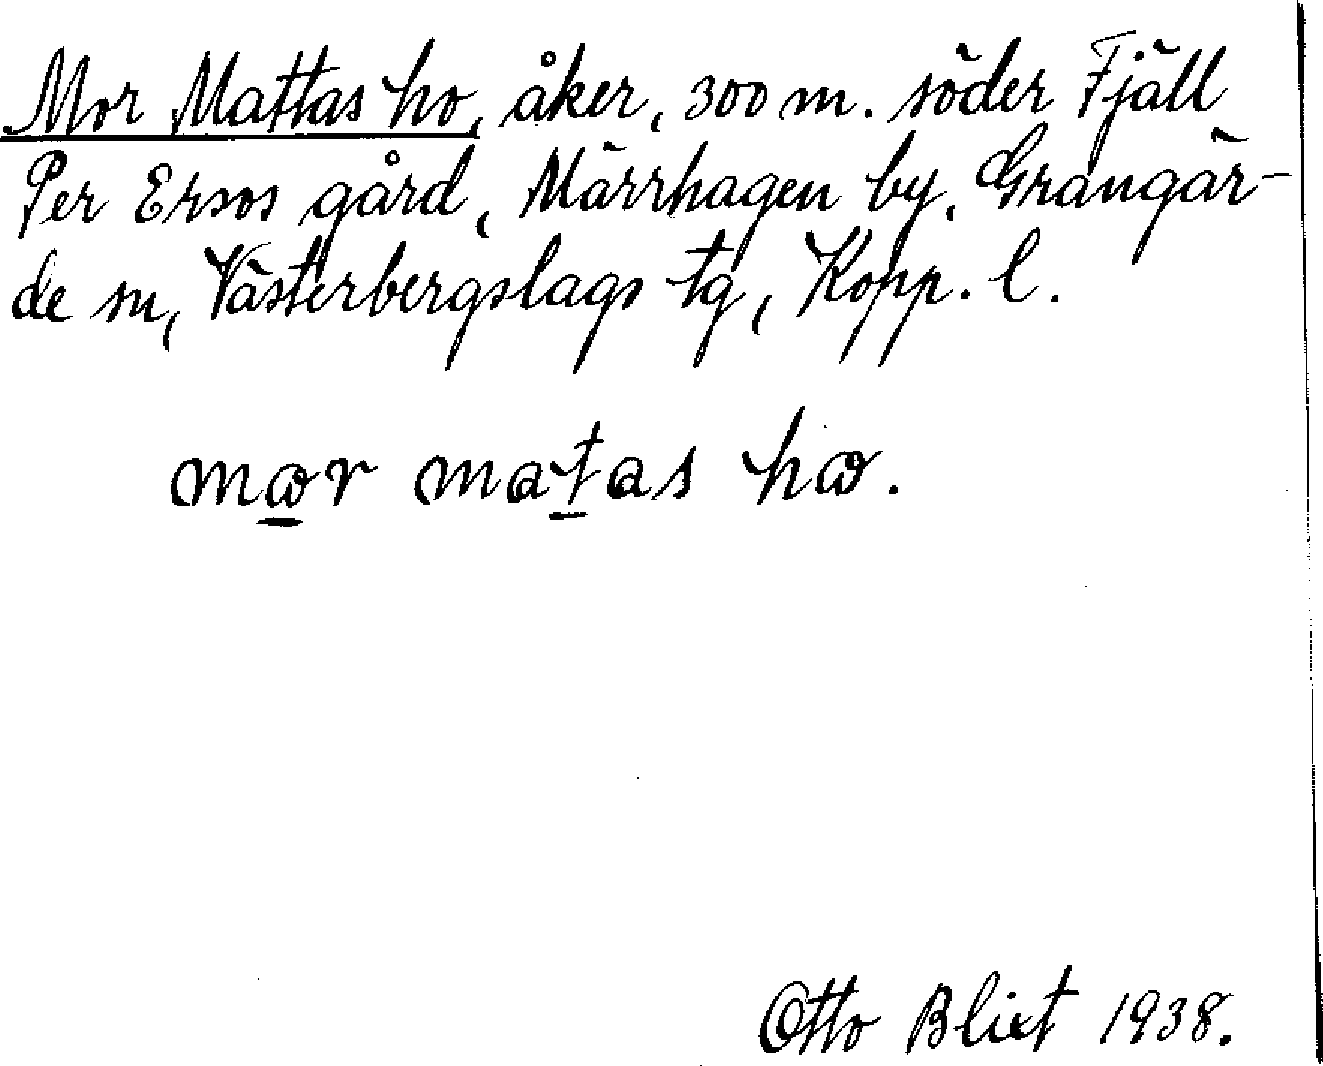 Mor Mattas ho, åker, 300 m. söder Fjäll
Per Ersos gård, Märrhagen by, Grangär-
de sn, Västerbergslags tg, Kopp. l.
mꙍr matas hꙍ.
Otto Blixt 1938.